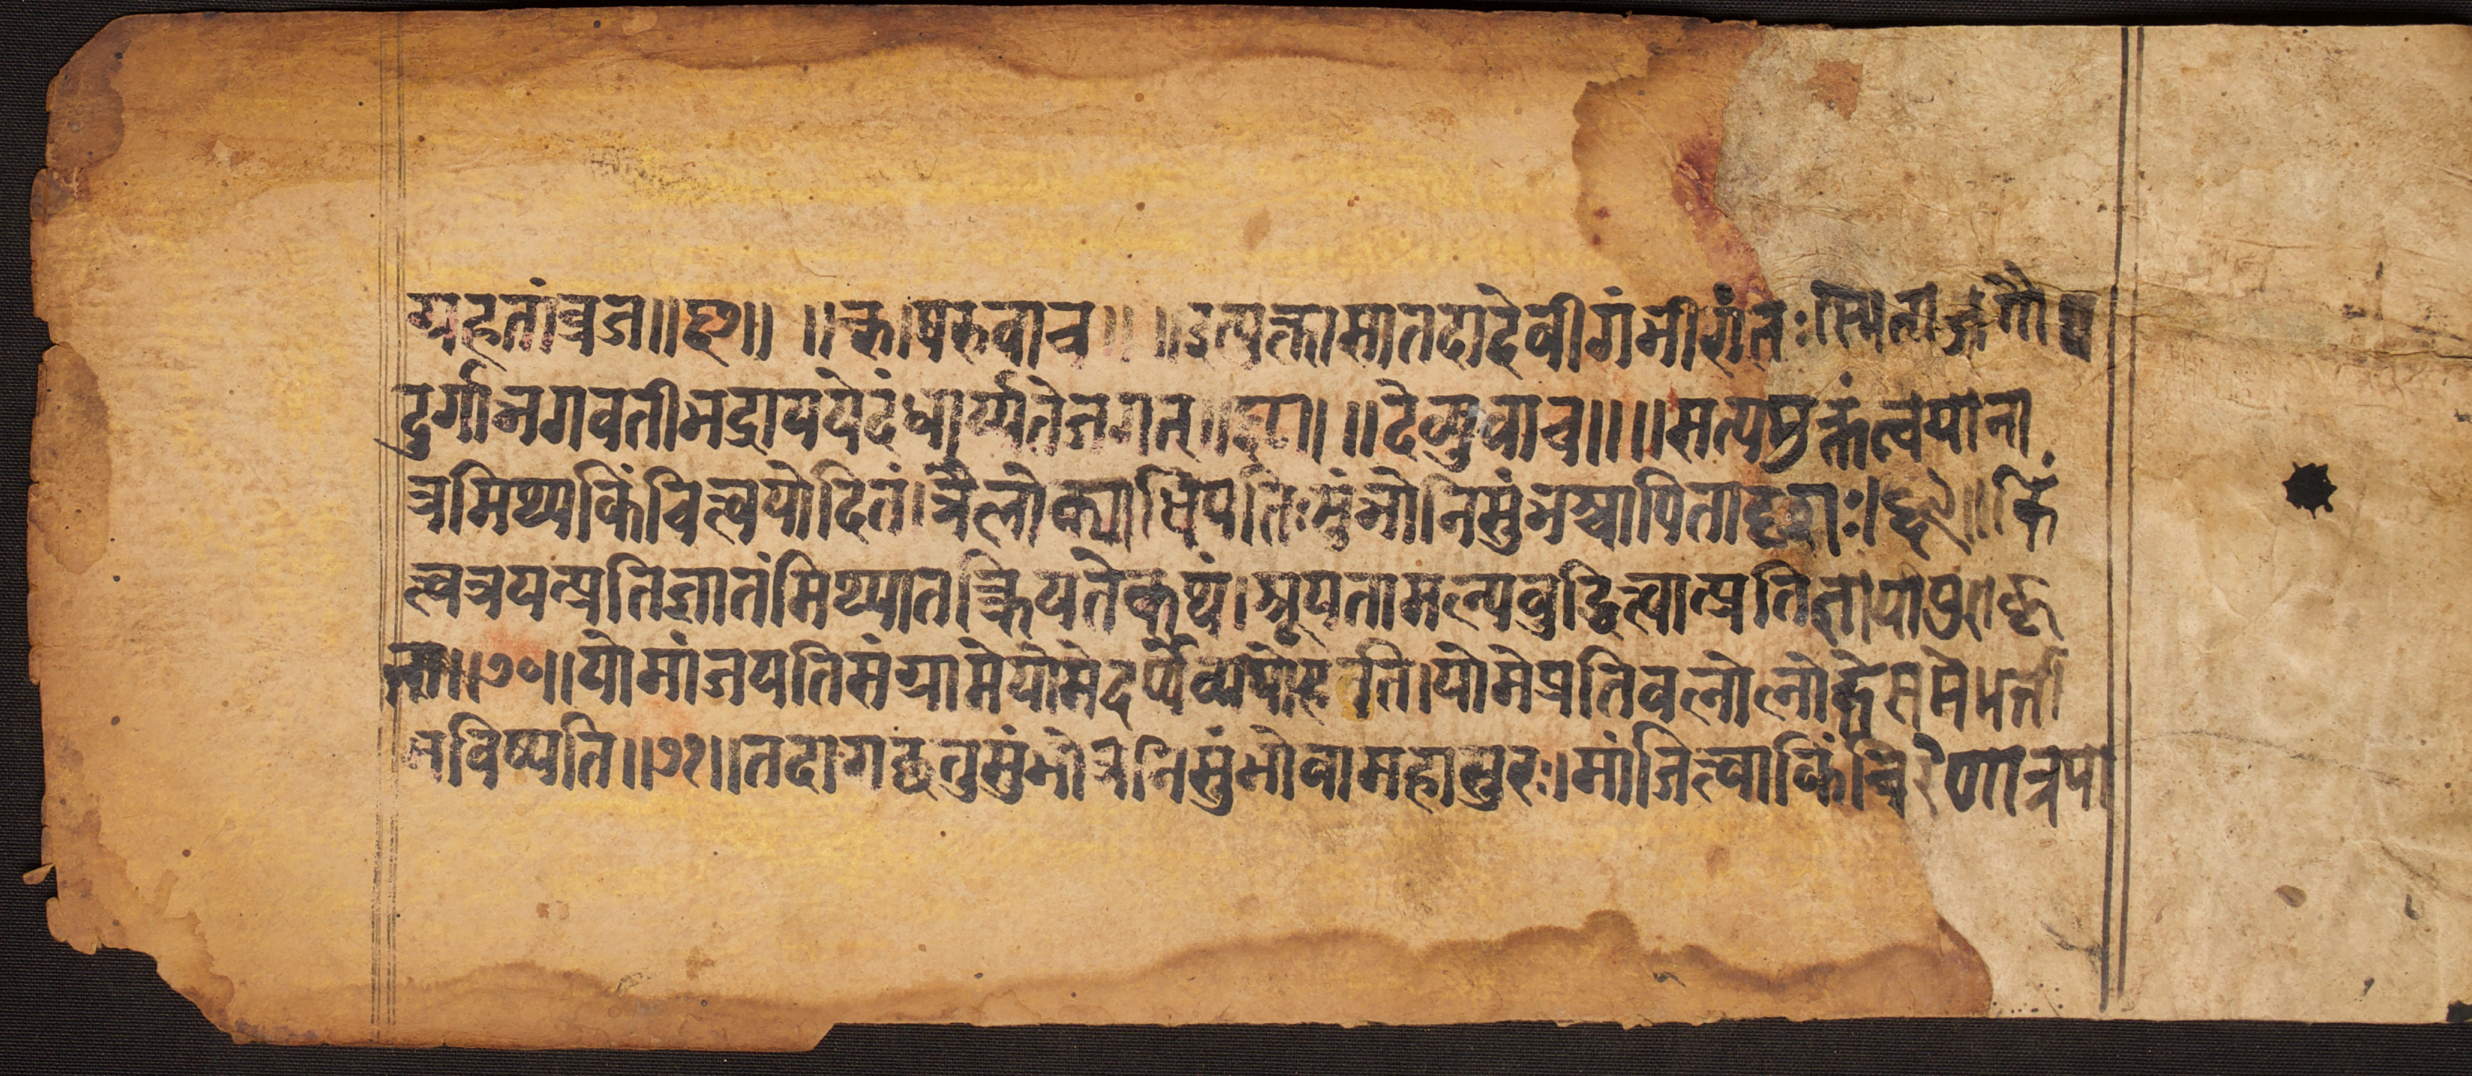 ग्रहतांव्रज॥६७॥ ॥ऋषिरुवाच॥ ॥इत्युक्तासातदादेवीगंभीरांतःस्मिताजगौ
दुर्गाभगवतीभद्राययेदंधार्य्यतेजगत्॥६८॥ ॥देव्युवाच॥॥सत्यमुक्तंत्वयाना
त्रमिथ्यकिंचित्त्वयोदितं।त्रैलोक्याधिपतिःसुंभोनिसुंभश्चापितादृशाः।६९॥किं
त्वत्रयत्प्रतिज्ञातंमिथ्यातक्रियतेकथं।श्रूयतामल्पबुद्धित्वात्प्रतिज्ञायापुराकृ
ता॥७०॥योमांजयतिसंग्रामेयोमेदर्प्पंव्यपोहति।योमेप्रतिवलोलोकेसमेभर्त्ता
भविष्यति॥७१॥तदागच्छतुसुंभोत्रनिसुंभोवामहासुरः।मांजित्वाकिंचिरेणात्रपा